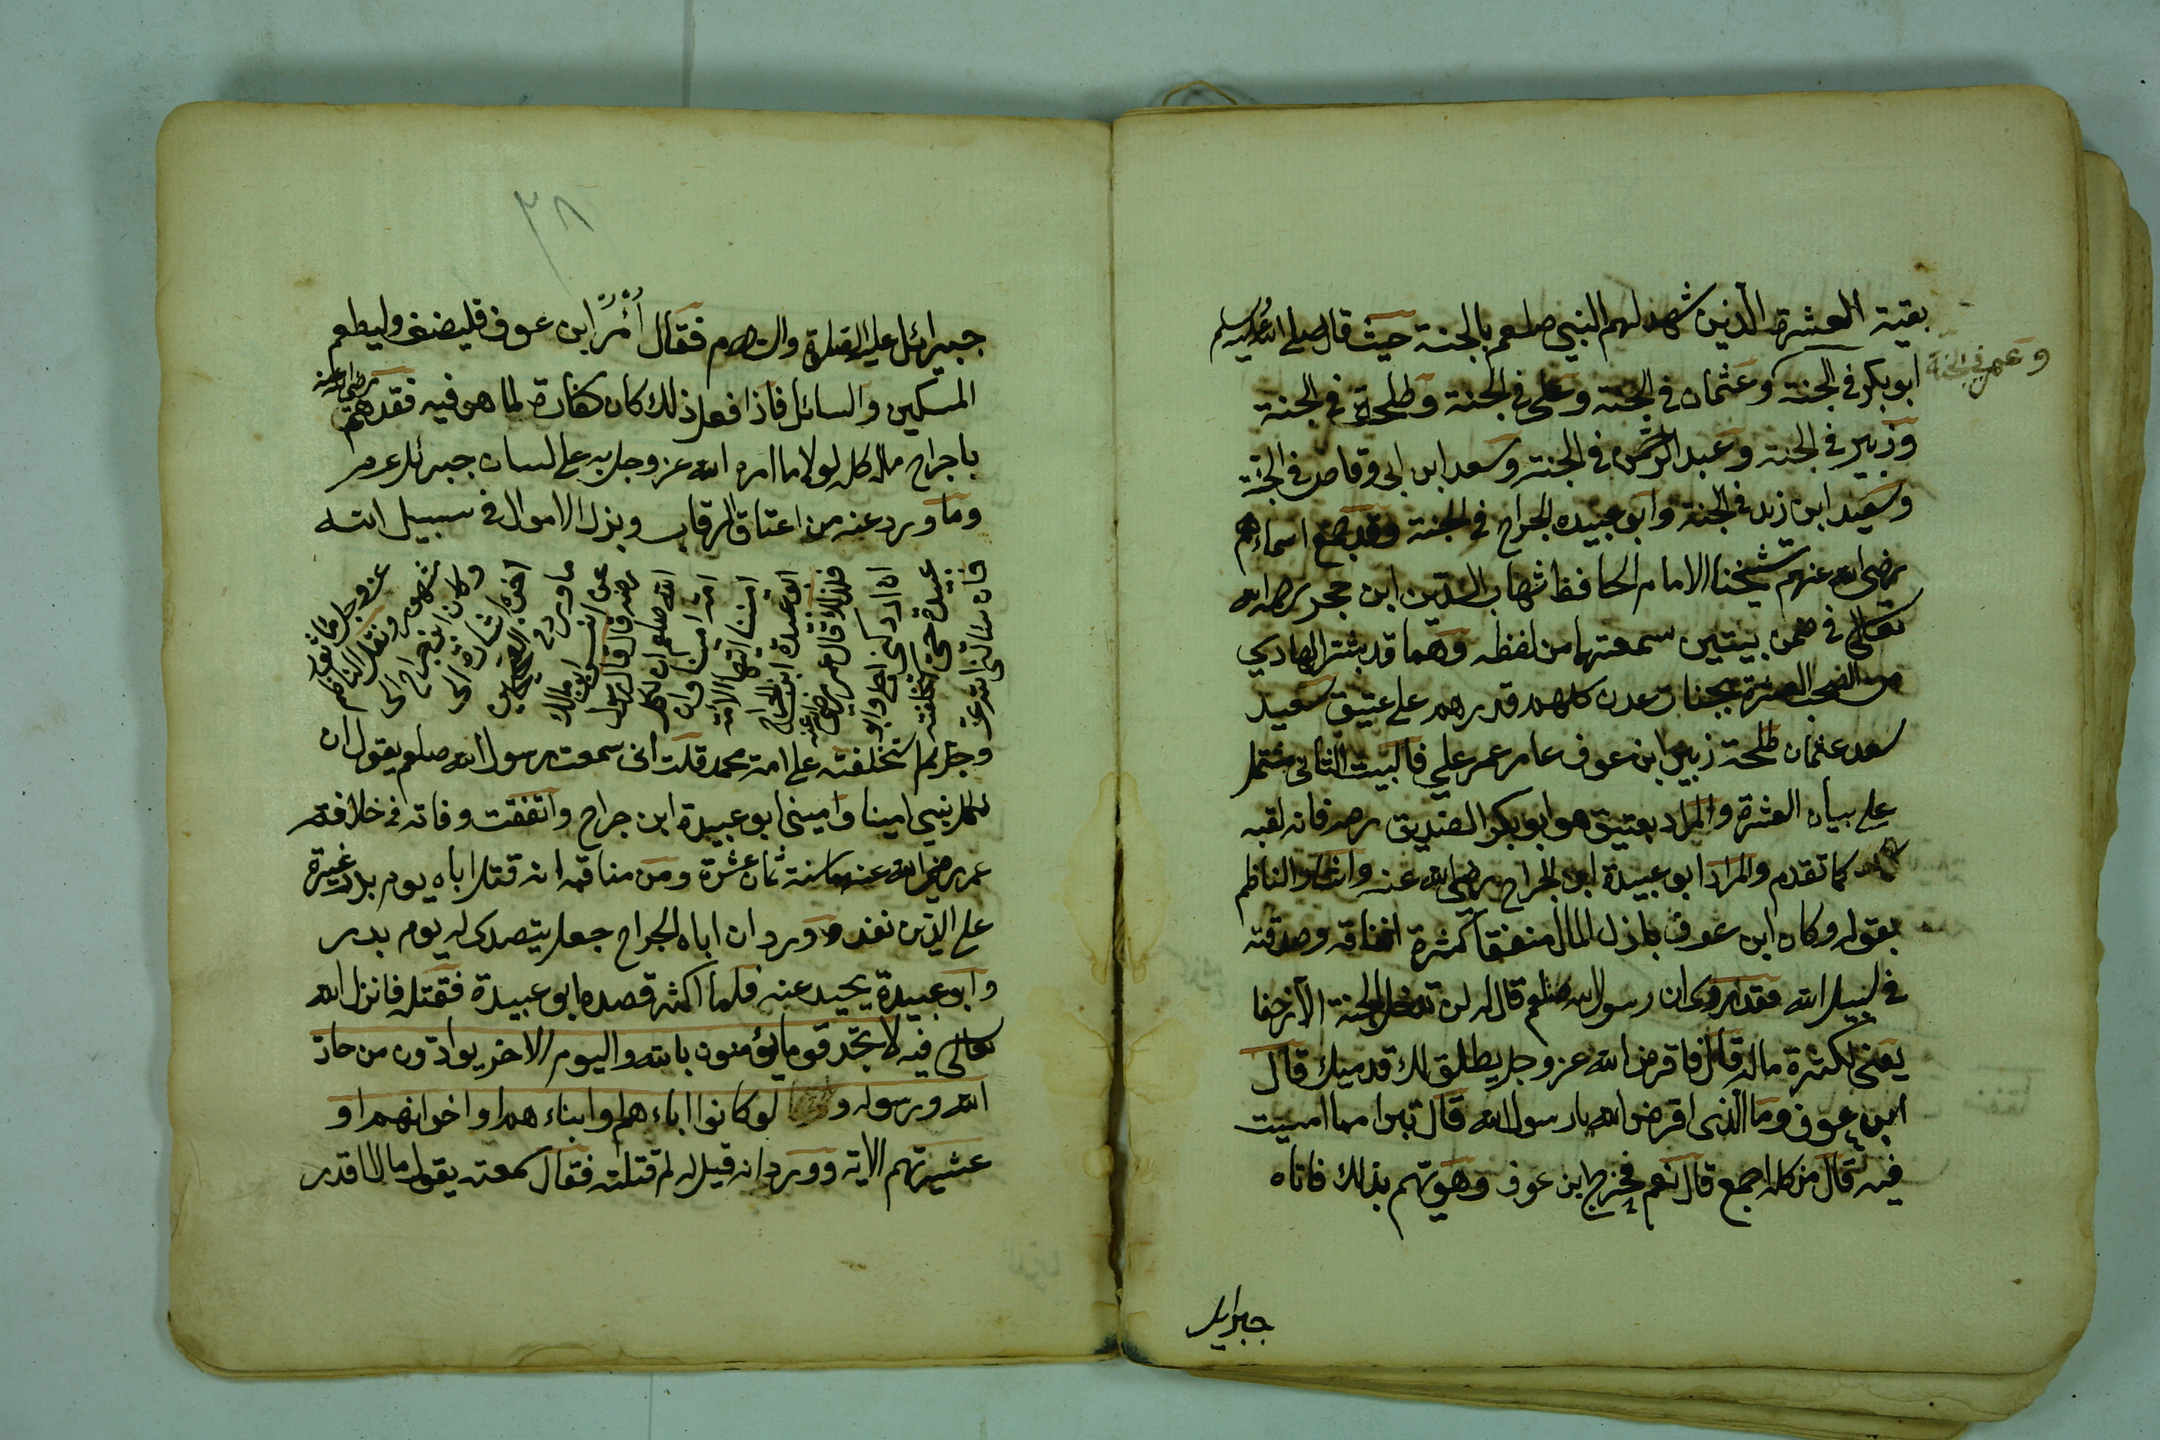 بقية العشرة الذين شهد لهم النبي صلعم بالجنة حيث قال صلى الله عليه وسلم
ابو بكر في الجنة وعثمان في الجنة وعلي في الجنة وطلحة في الجنة
وعمر في الجنة
وزبير في الجنة وعبد الرحمن في الجنة وسعد ابن ابى وقاص في الجنة
وسعيد ابن زيد في الجنة وابو عبيده الجراح في الجنة وقد جمع اسماءهم
رضى الله عنهم شيخنا الامام الحافظ شهاب الدين ابن حجر رحمه الله
تعالى في ضمن بيتين سمعتهما من لفظه وهما قد بشر الهادي
من الصحب العشرة بجنات عدن كلهم قدرهم على عتيق سعيد
سعد عثمان طلحة زبير ابن عوف عامر عمر علي فالبيت الثاني مشتمل
على بيان العشرة والمراد بعتيق هو ابو بكر الصديق رضه فانه لقبه
كما تقدم والمراد ابو عبيدة ابن الجراح رضى الله عنه واشار الناظم
بقوله وكان ابن عوف باذل المال منفقا لكثرة انفاقه وصدقته
في سبيل الله فقد روى ان رسول الله صلعم قال له لن تدخل الجنة الا زحفا
يعنى لكثرة ماله قال فاقرض الله عز وجل يطلق لك قدميك قال
ابن عوف وما الذى اقرض الله يا رسول الله قال تبرا مما امسيت
فيه قال من كله اجمع قال نعم فخرج ابن عوف وهو يهم بذلك فاتاه
جبرايل
٣٨
جبرائل عليه الصلوة والسلام فقال أُمُرْ ابن عوف فليضف وليطعم
المسكين والسائل فاذا فعل ذلك كان كفارة لما هو فيه فقد هم رضى الله عنه
باخراج ماله كله لولا ما امره الله عز وجل به على لسان جبرئل عم
وما ورد عنه من اعتاق الرقاب وبذل الاموال في سبيل الله
عز وجل
وكان ابن جراح
اخرج
ما ورد في الصحيحين
عن انس ابن مالك
رضه قال قال رسول
الله صلعم ان لكل
امة امينا وان
اميننا ايتها الامة
ابو عبيدة ابن الجراح
قال عمر رضى الله عنه
ان ادركنى اجلى وابو
عبيدة حى استخلفته
فان سئالنى الله عز
وجل لم استخلفته على امة محمد قلت انى سمعت رسول الله صلعم يقول ان
لكل نبي امينا وامينى ابو عبيدة ابن جراح واتفقت وفاته في خلافة
عمر رضى الله عنهما سنة ثمان عشرة ومن مناقبه انه قتل اباه يوم بدر غيرة
على الدين فقد وورد ان اباه الجراح جعل يتصدى له يوم بدر
وابو عبيدة يحيد عنه فلما اكثر قصده ابو عبيدة فقتله فانزل الله
تعالى فيه لا تجد قوما يؤمنون بالله واليوم الاخر يوادون من حاد
الله ورسوله ولو كانوا اباءهم او ابناءهم او اخوانهم او
عشيرتهم الاية وورد انه قيل له لم قتلته فقال سمعته يقول ما لا اقدر